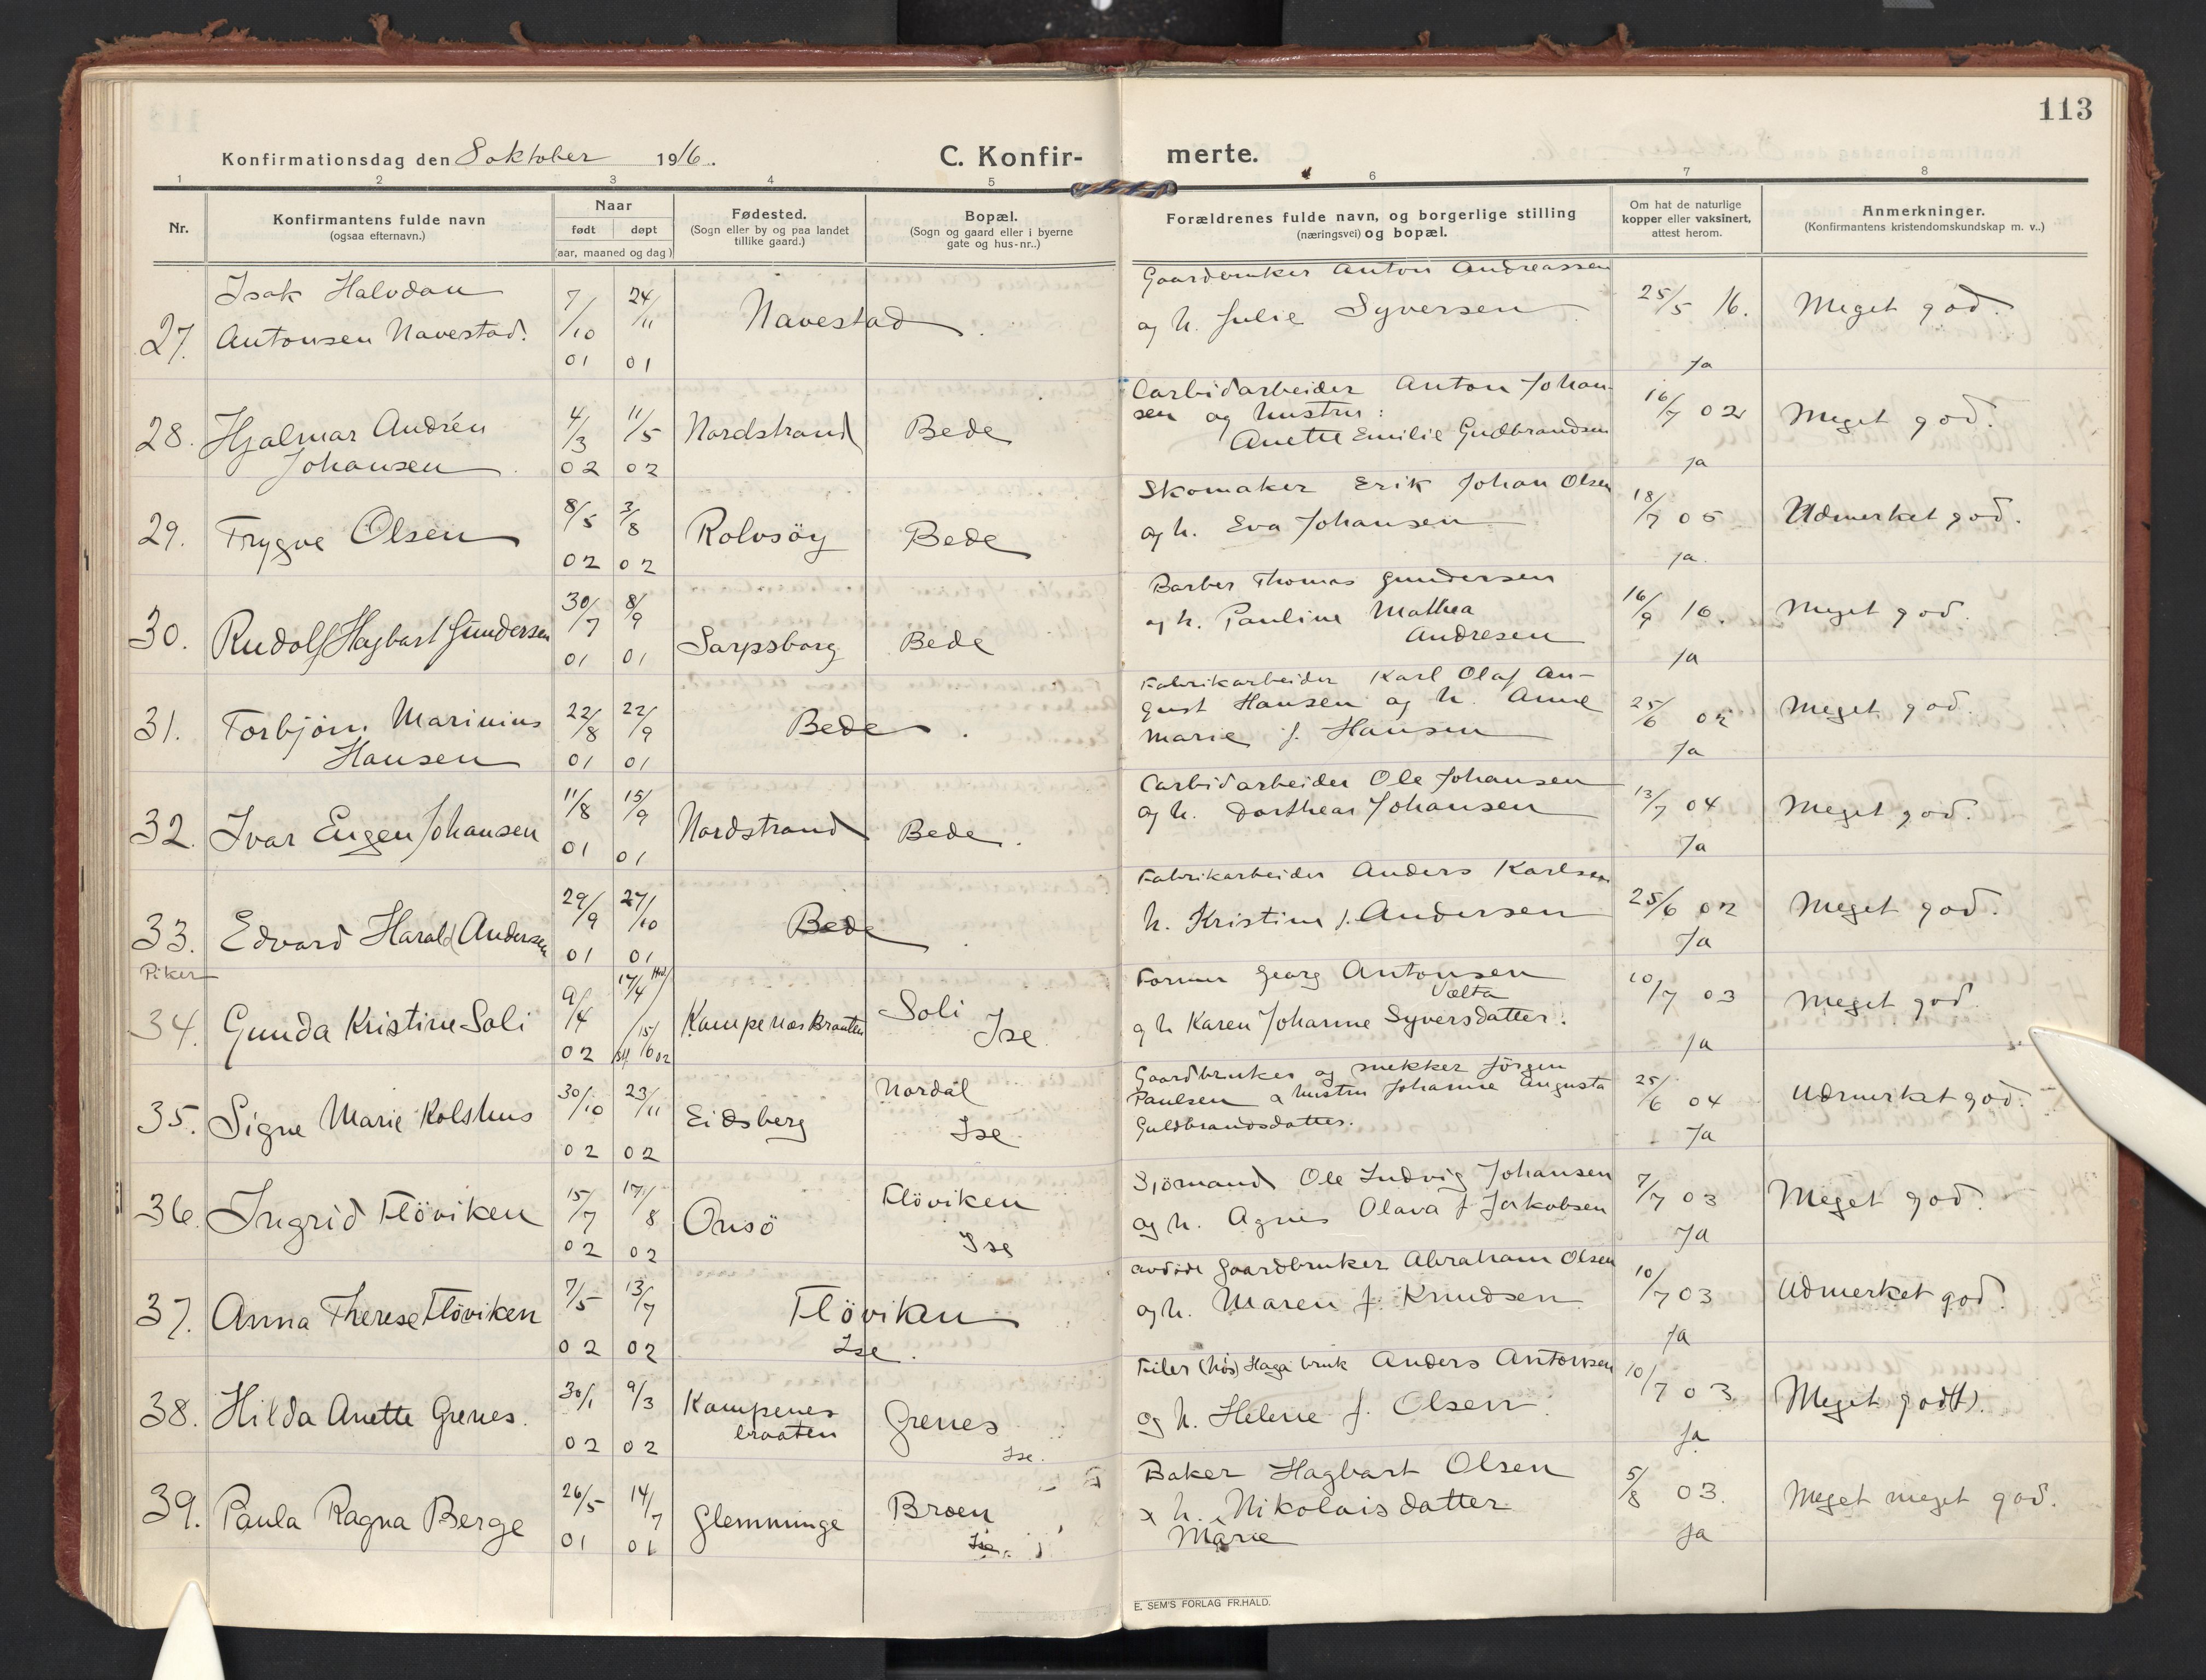 113
Konfirmationsdag den 8 oktober 1916.
C. Konfir-
merte.
1 2 3 4 5 6 7 8
Nr.
Konfirmantens fulde navn
(ogsaa efternavn.)
Naar
født døpt
(aar, maaned og dag)
Fødested.
(Sogn eller by og paa landet
tillike gaard.)
Bopæl.
(Sogn og gaard eller i byerne
gate og hus-nr..)
Forældrenes fulde navn, og borgerlige stilling
(næringsvei) og bopæl.
Om hat de naturlige
kopper eller vaksinert,
attest herom.
Anmerkninger.
(Konfirmantens kristendomskundskap m. v..)
27. Isak Halvdan
Antonsen Navestad.
7/10 01
24/11 01
Navestad.
Gaardbruker Anton Andreassen
og h. Julie Syversen
25/5 16.
Ja
Meget god.
28. Hjalmar Andrén
Johansen.
4/3 02
11/5 02
Nordstrand
Bede
Carbidarbeider Anton Johan-
sen og hustru:
Anette Emilie Gudbrandsen
16/7 02
Ja
Meget god.
29. Trygve Olsen
8/5 02
3/8 02
Rolvsöy
Bede
Skomaker Erik Johan Olsen
og h. Eva Johansen
18/7 05
Ja.
Udmerket god.
30. Rudolf Hagbart Gundersen
30/7 01
8/9 01
Sarpsborg
Bede
Barber Thomas Gundersen
og h. Pauline Mathea
Andresen
16/9 16.
Ja
Meget god.
31. Torbjörn Marinius
Hansen
22/8 01
22/9 01
Bede.
Fabrikarbeider Karl Olaf Au-
gust Hansen og h. Anne
Marie f. Hansen
25/6 02
Ja
Meget god.
32. Ivar Eugen Johansen
11/8 01
15/9 01
Nordstrand
Bede.
Carbidarbeider Ole Johansen
og h. Dorthea Johansen
13/7 04
Ja
Meget god.
33. Edvard Harald Andersen
29/9 01
27/10 01
Bede.
Fabrikarbeider Anders Karlsen
h. Kristine f. Andersen
25/6 02
Ja
Meget god.
Piker
34. Gunda Kristine Soli
9/4 02
17/4
15/6 02
Kampenesbraaten
Soli
Ise
Former Georg Antonsen
Valta
g h Karen Johanne Syversdatter.
10/7 03
Ja
Meget god.
35. Signe Marie Kolshus
30/10 02
23/11 02
Eidsberg
Nordal
Ise
Gaardbruker og snekker Jörgen
Paulsen & hustru Johanne Augusta
Guldbrandsdatter.
25/6 04
Ja
Udmerket god.
36. Ingrid Flöviken
15/7 02
17/8 02
Onsö
Flöviken
Ise
Sjömand Ole Ludvig Johansen
og h. Agnes Olava f Jakobsen
7/7 03
Ja
Meget god.
37. Anna Therese Flöviken
7/5 02
13/7 02
Flöviken
Ise.
avdöde gaardbruker Abraham Olsen
og h. Maren f. Knudsen
10/7 03
Ja
Udmerket god.
38. Hilda Anette Grenes.
30/1 02
9/3 02
Kampenes
braaten
Grenes
Ise.
Filer (hos) Haga bruk Anders Antonsen
og h. Helene f. Olsen.
10/7 03
Ja
Meget god(t).
39. Paula Ragna Berge
26/5 01
14/7 01
Glemminge
Broen
Ise.
Baker Hagbart Olsen
& h. Nikolaisdatter
Marie
5/8 03.
Ja
Meget meget god.
E. SEM'S FORLAG FR.HALD.